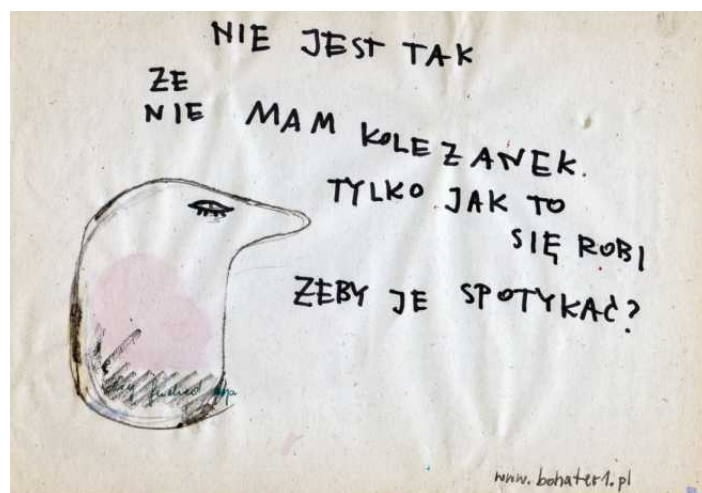 NIE JEST TAK
ZE
NIE MAM KOLEZANEK.
TYLKO JAK TO
SIĘ ROBI
ZEBY JE SPOTYKAĆ?
www.bohater1.pl